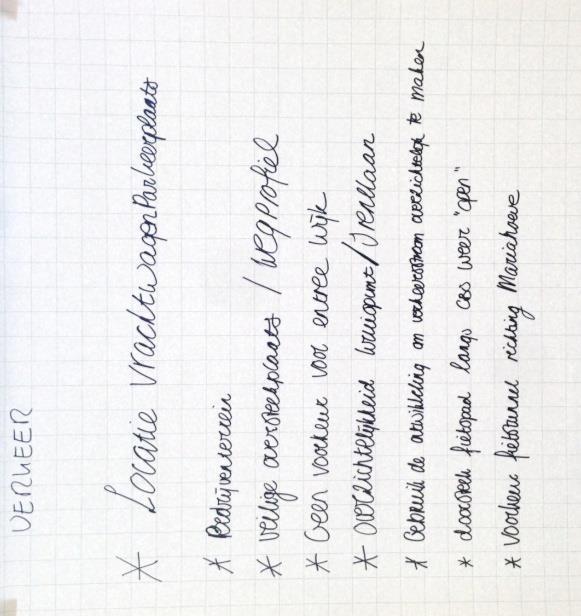 VERKEER
* Locatie VrachtwagenParkeerplaats
* Bedrijventerrein
* Veilige oversteekplaats / wegprofiel
* Geen voorkeur voor entree wijk
* overzichtelijkheid kruispunt / Irenelaan
* Gebruik de ontwikkeling om verkeersstroom overzichtelijk te maken
* doorsteek fietspad langs CBS weer "open"
* Voorkeur fietstunnel richting Mariahoeve